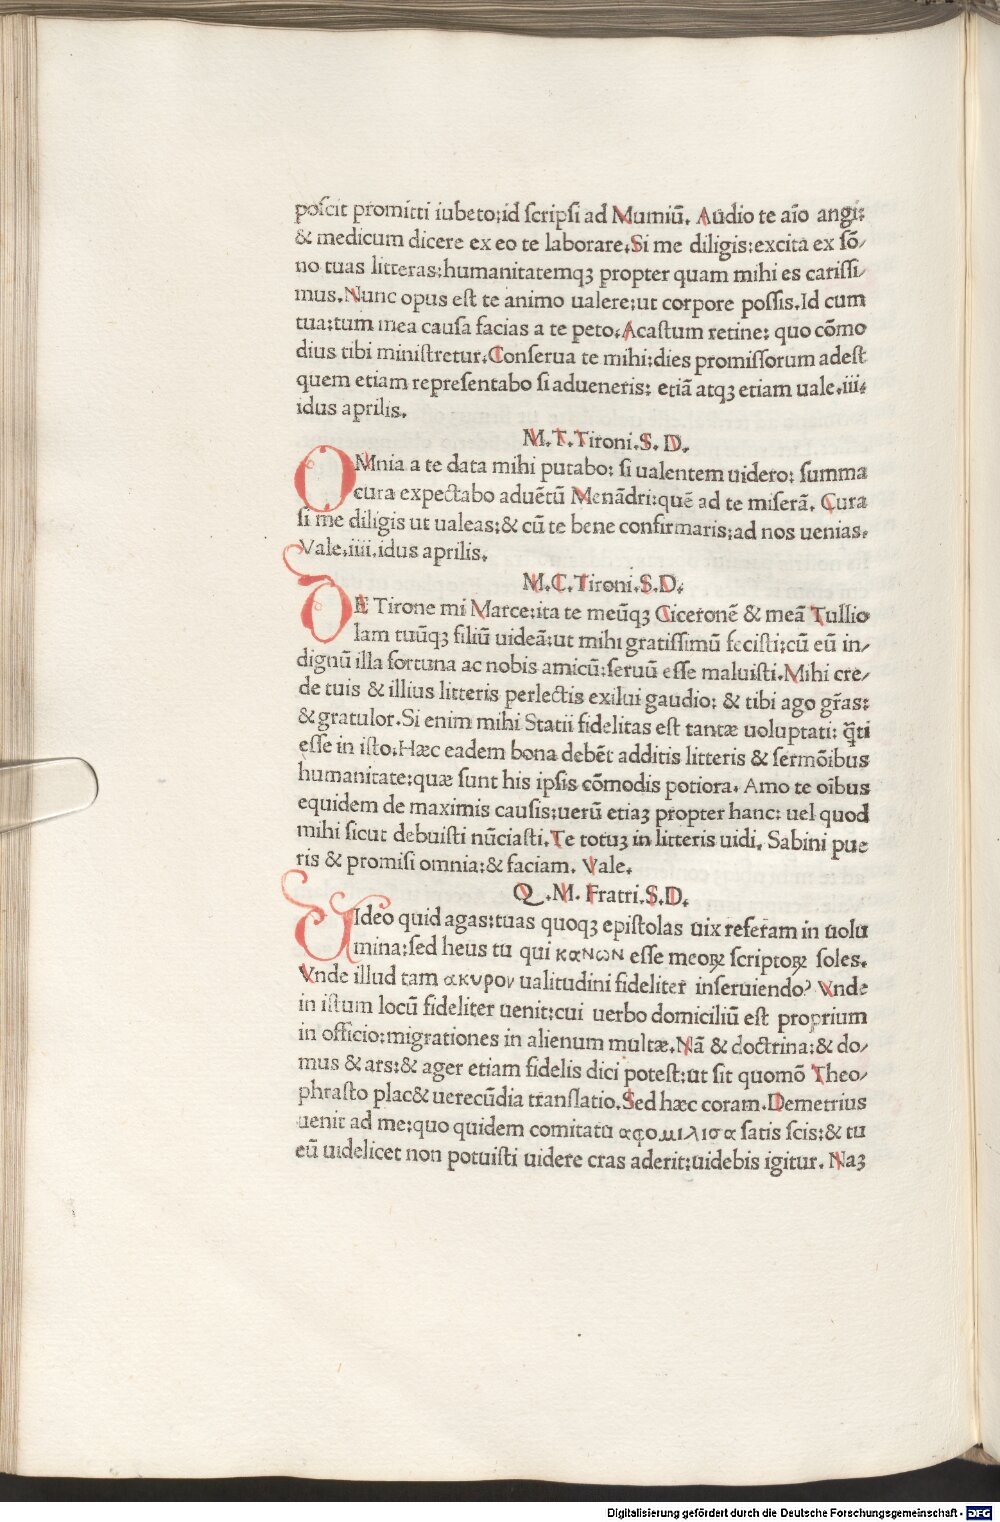 poſcit promitti iubeto:id ſcripſi ad Mumiũ. Audio te aĩo angi:
& medicum dicere ex eo te laborare.Si me diligis:excita ex ſõ/
no tuas litteras:humanitatemqꝫ propter quam mihi es cariſſi/
mus.Nunc opus eſt te animo ualere:ut corpore poſſis.Id cum
tua:tum mea cauſa facias a te peto.Acaſtum retine: quo cõmo
dius tibi miniſtretur.Conſerua te mihi:dies promiſſorum adeſt
quem etiam repreſentabo ſi adueneris: etiã atqꝫ etiam uale.iii.
idus aprilis.
M.T.Tironi.S.D.
OMnia a te data mihi putabo: ſi ualentem uidero: ſumma
cura expectabo aduẽtũ Menãdri:quẽ ad te miſerã. Cura
ſi me diligis ut ualeas:& cũ te bene confirmaris:ad nos uenias.
Vale.iiii.idus aprilis.
M.C.Tironi.S.D.
DE Tirone mi Marce:ita te meũqꝫ Ciceronẽ & meã Tullio
lam tuũqꝫ filiũ uideã:ut mihi gratiſſimũ feciſti:cũ eũ in/
dignũ illa fortuna ac nobis amicũ:ſeruũ eſſe maluiſti.Mihi cre/
de tuis & illius litteris perlectis exilui gaudio: & tibi ago gr̃as:
& gratulor.Si enim mihi Statii fidelitas eſt tantæ uoluptati: q̃ti
eſſe in iſto.Hæc eadem bona debẽt additis litteris & ſermõibus
humanitate:quæ ſunt his ipſis cõmodis potiora. Amo te oĩbus
equidem de maximis cauſis:uerũ etiaꝫ propter hanc: uel quod
mihi ſicut debuiſti nũciaſti.Te totuꝫ in litteris uidi. Sabini pue
ris & promiſi omnia:& faciam. Vale.
Q.M. Fratri.S.D.
VIdeo quid agas:tuas quoqꝫ epiſtolas uix referam in uolu
mina:ſed heus tu qui κανων eſſe meoꝝ ſcriptoꝝ ſoles.
Vnde illud tam ακυρον ualitudini fideliter inſeruiendo? Vnde
in iſtum locũ fideliter uenit:cui uerbo domiciliũ eſt proprium
in officio:migrationes in alienum multæ.Nã & doctrina:& do/
mus & ars:& ager etiam fidelis dici poteſt:ut ſit quomõ Theo/
phraſto plac& uerecũdia tranſlatio.Sed hæc coram.Demetrius
uenit ad me:quo quidem comitatu αφομιλισα ſatis ſcis:& tu
eũ uidelicet non potuiſti uidere cras aderit:uidebis igitur. Naꝫ
Digitalisierung gefördert durch die Deutsche Forschungsgemeinschaft - DFG